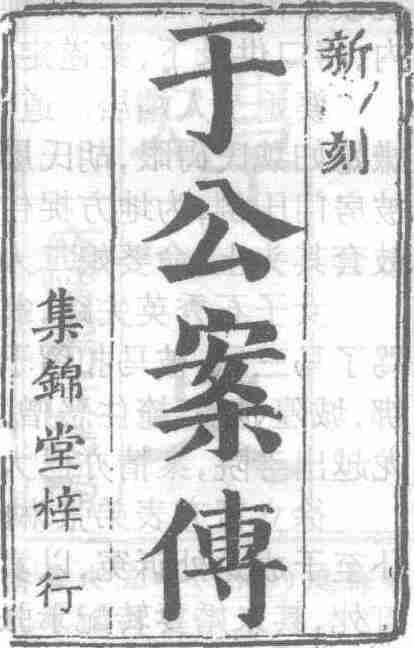 新刻
于公案傳
集錦堂梓行